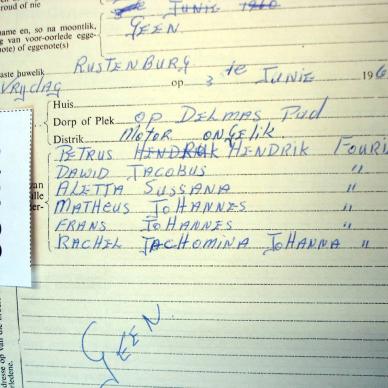 oud of nie
JUNIE 1960
name en, so na moontlik,
g van voor-oorlede egge-
note) of eggenote(s)
GEEN.
aaste huwelik
RUSTENBURG
VRYDAG
op 3 de JUNIE 196
Huis
Dorp of Plek OP DELMAS Pad
Distrik MOTOR ONGELIK.
PETRUS HENDRIK FOURI
DAWID JACOBUS "
ALETTA SUSSANA "
MATHEUS JOHANNES "
FRANS JOHANNES "
RACHEL JACHOMINA JOHANNA "
GEEN.